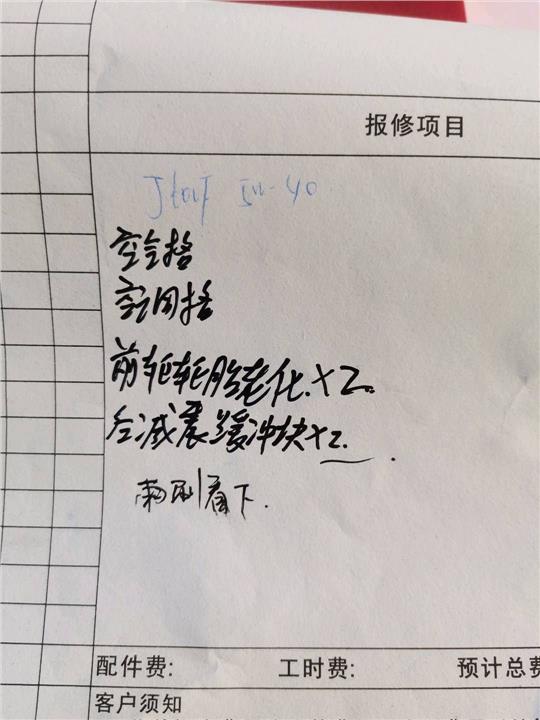 报修项目
5W-40
空气格
空调格
前轮轮胎老化×2
后减震缓冲块×2
看下.
配件费: 工时费: 预计总费
客户须知